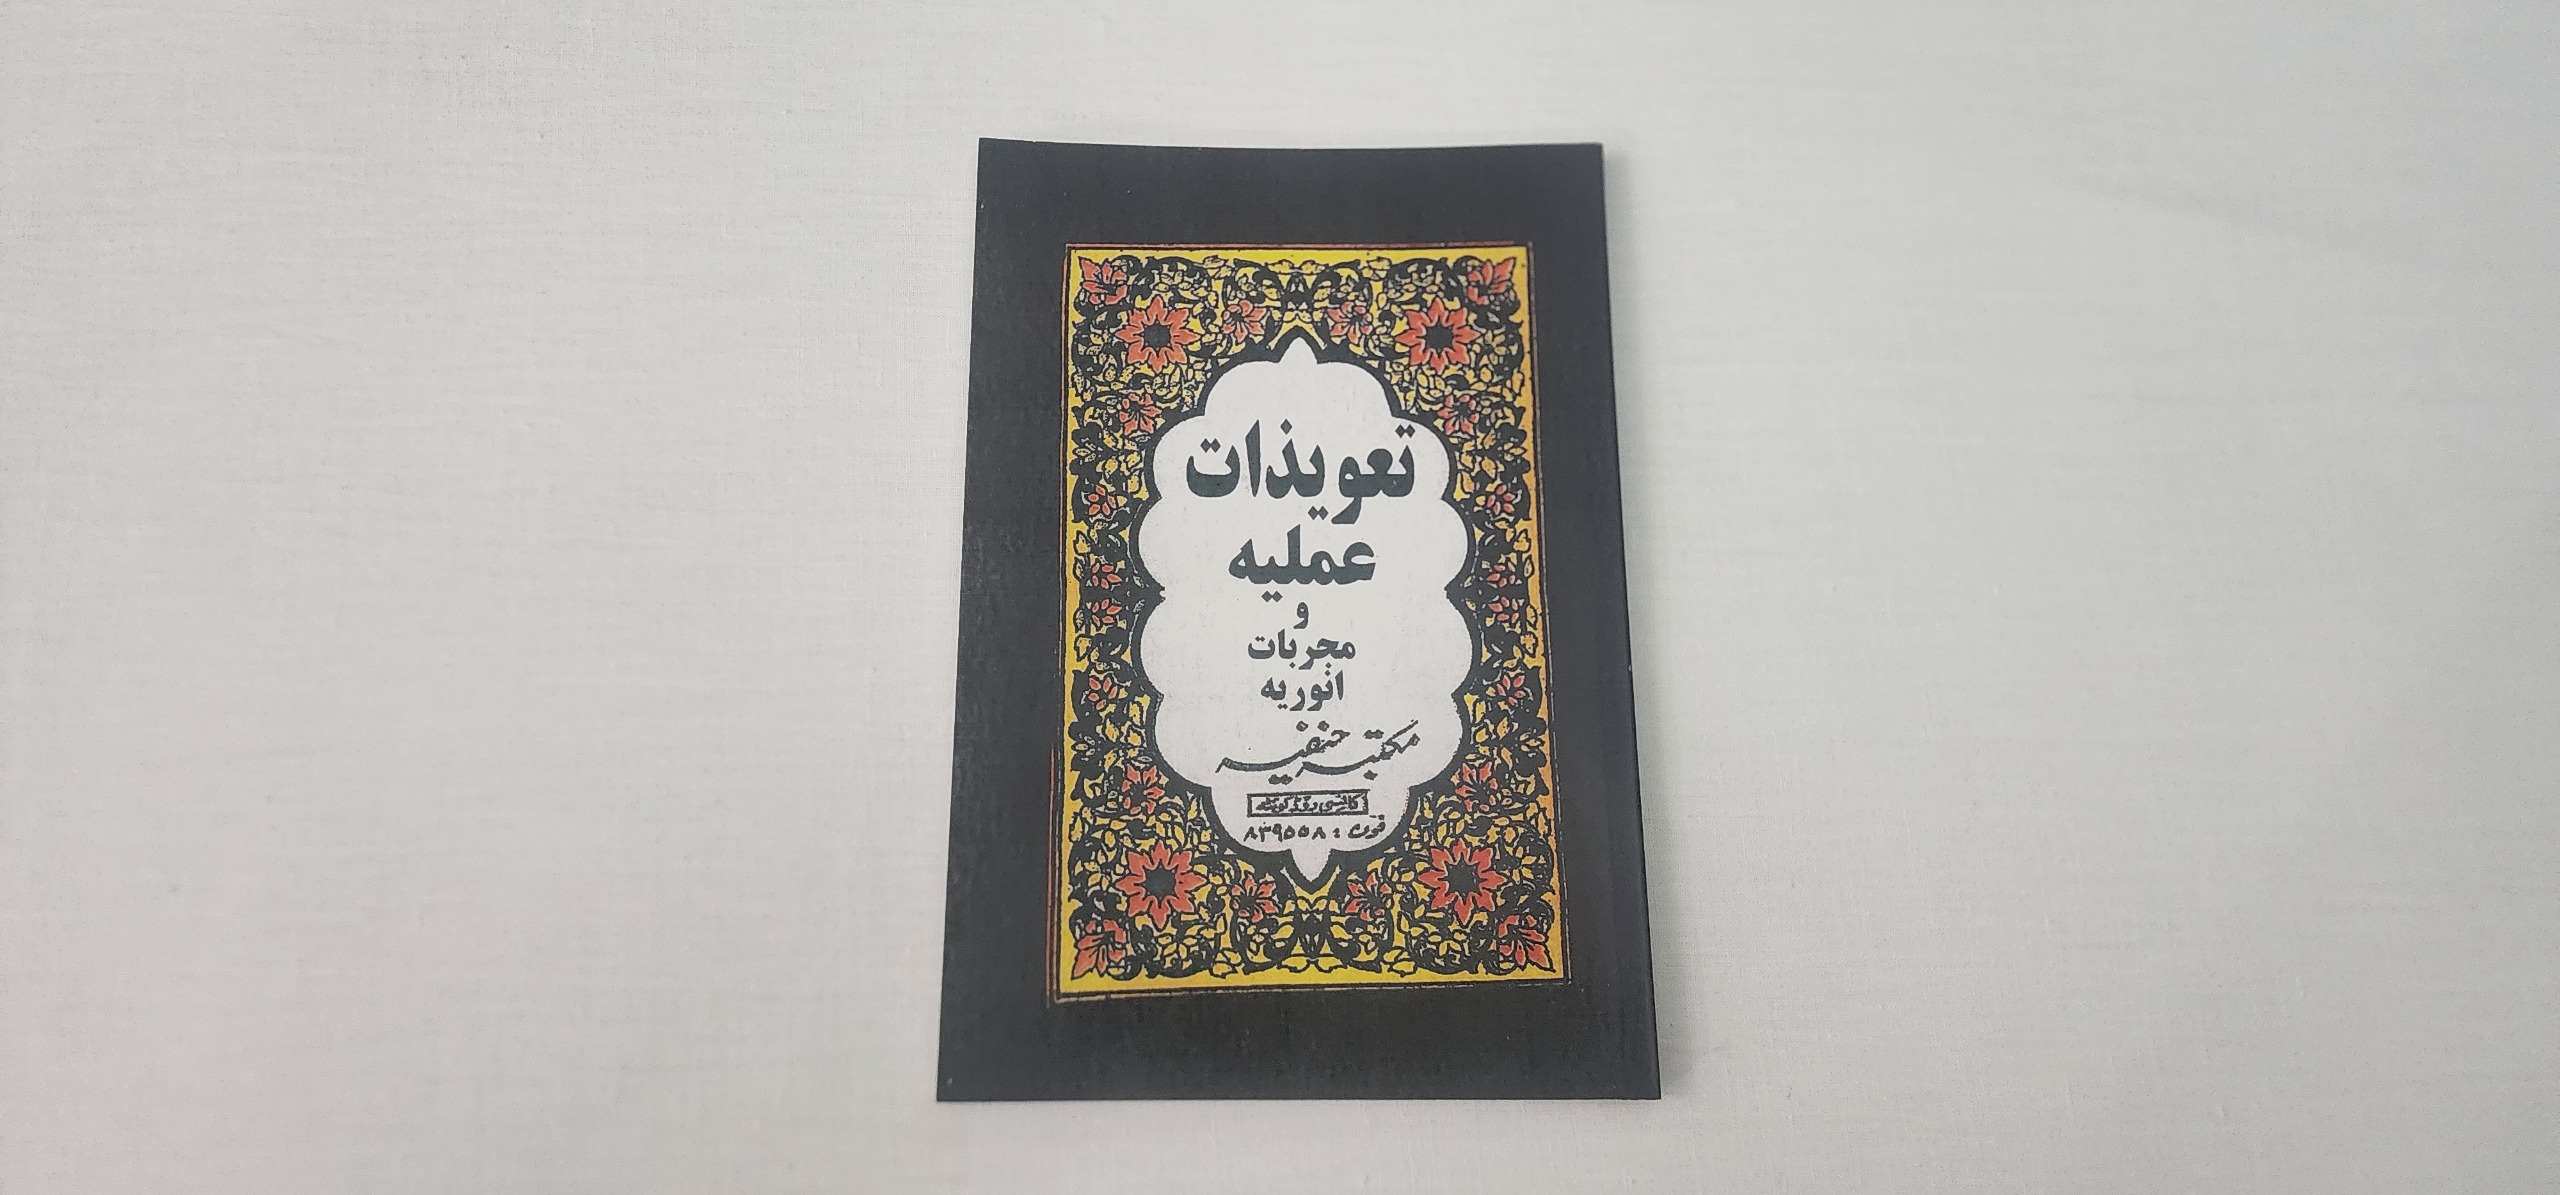 تعویذات
عملیه
و
مجربات
انوریه
مکتبه حنفیه
کانسی روڈ کوئٹہ
فون : ۸۳۹۵۵۸